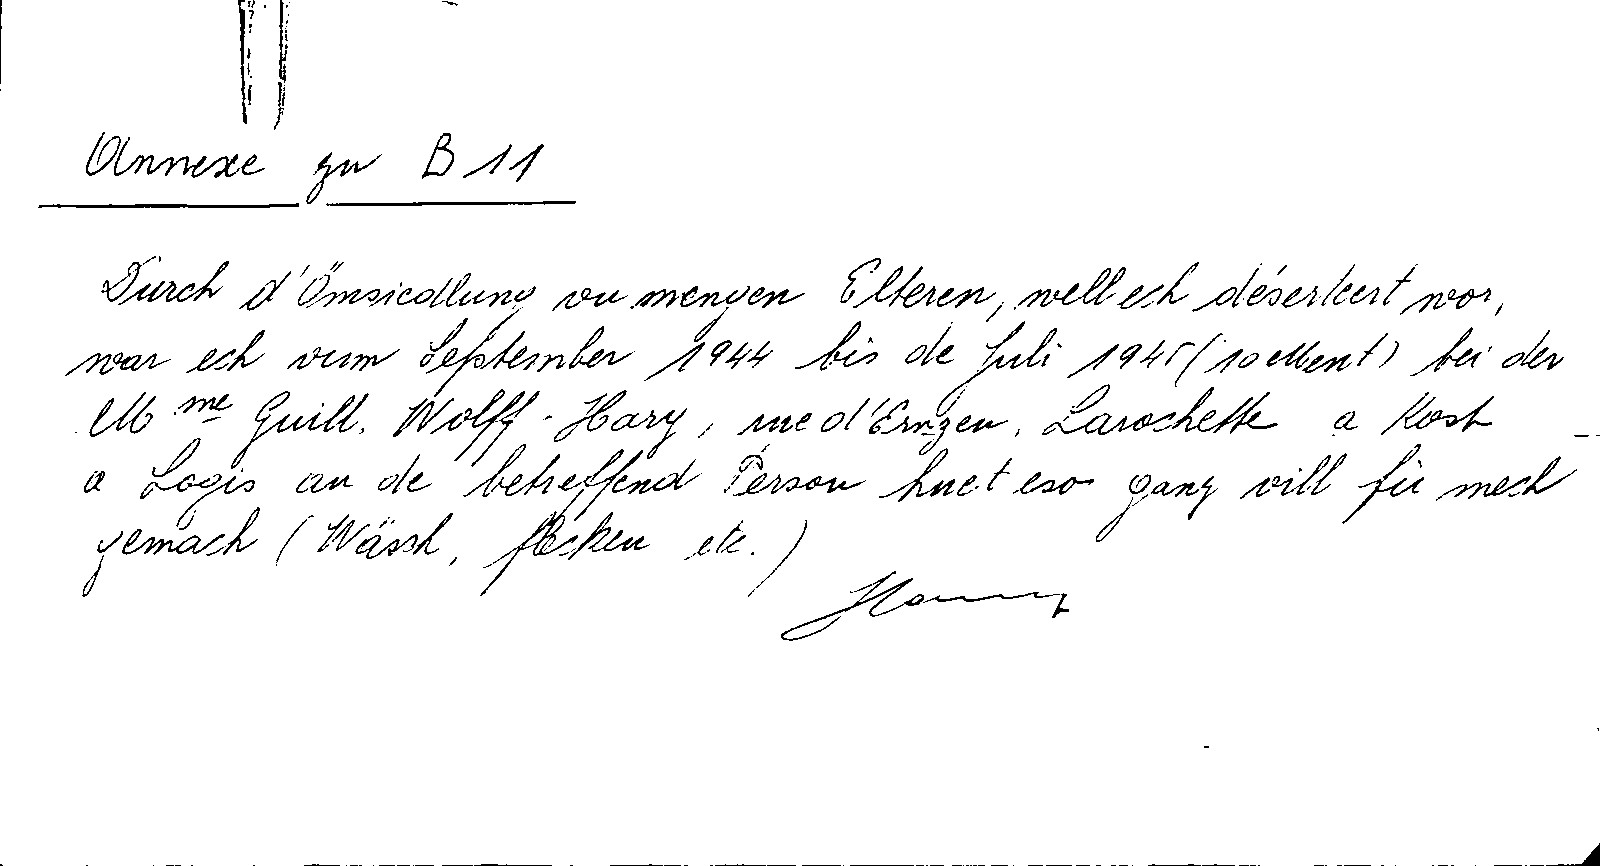 Annexe zu B 11
Durch d'Ömsiedlung vu mengen Elteren, well ech déserteert wor,
war ech vum September 1944 bis de Juli 1945 (10 Ment) bei der
Mme Guill. Wolff-Hary, rue d'Ernzen, Larochette a Kost
a Logis an de betreffend Persoun huet eso ganz vill fir mech
gemach (Wäsch, flécken etc.)